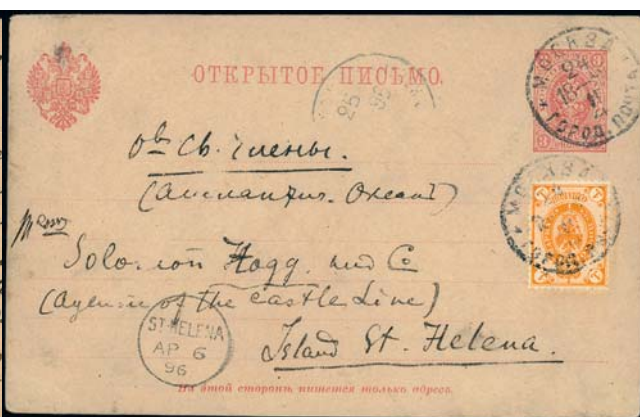 ОТКРЫТОЕ ПИСЬМО.
МОСКВА
24
ГОРОД. ПОЧТА
о-въ Св. Елены.
(Атлантич. Океанъ)
МОСКВА
Messrs
Solomon Hogg and Co
(Agents of the Castle Line)
Island St. Helena.
ST·HELENA
AP 6
96
На этой сторонѣ пишется только адресъ.